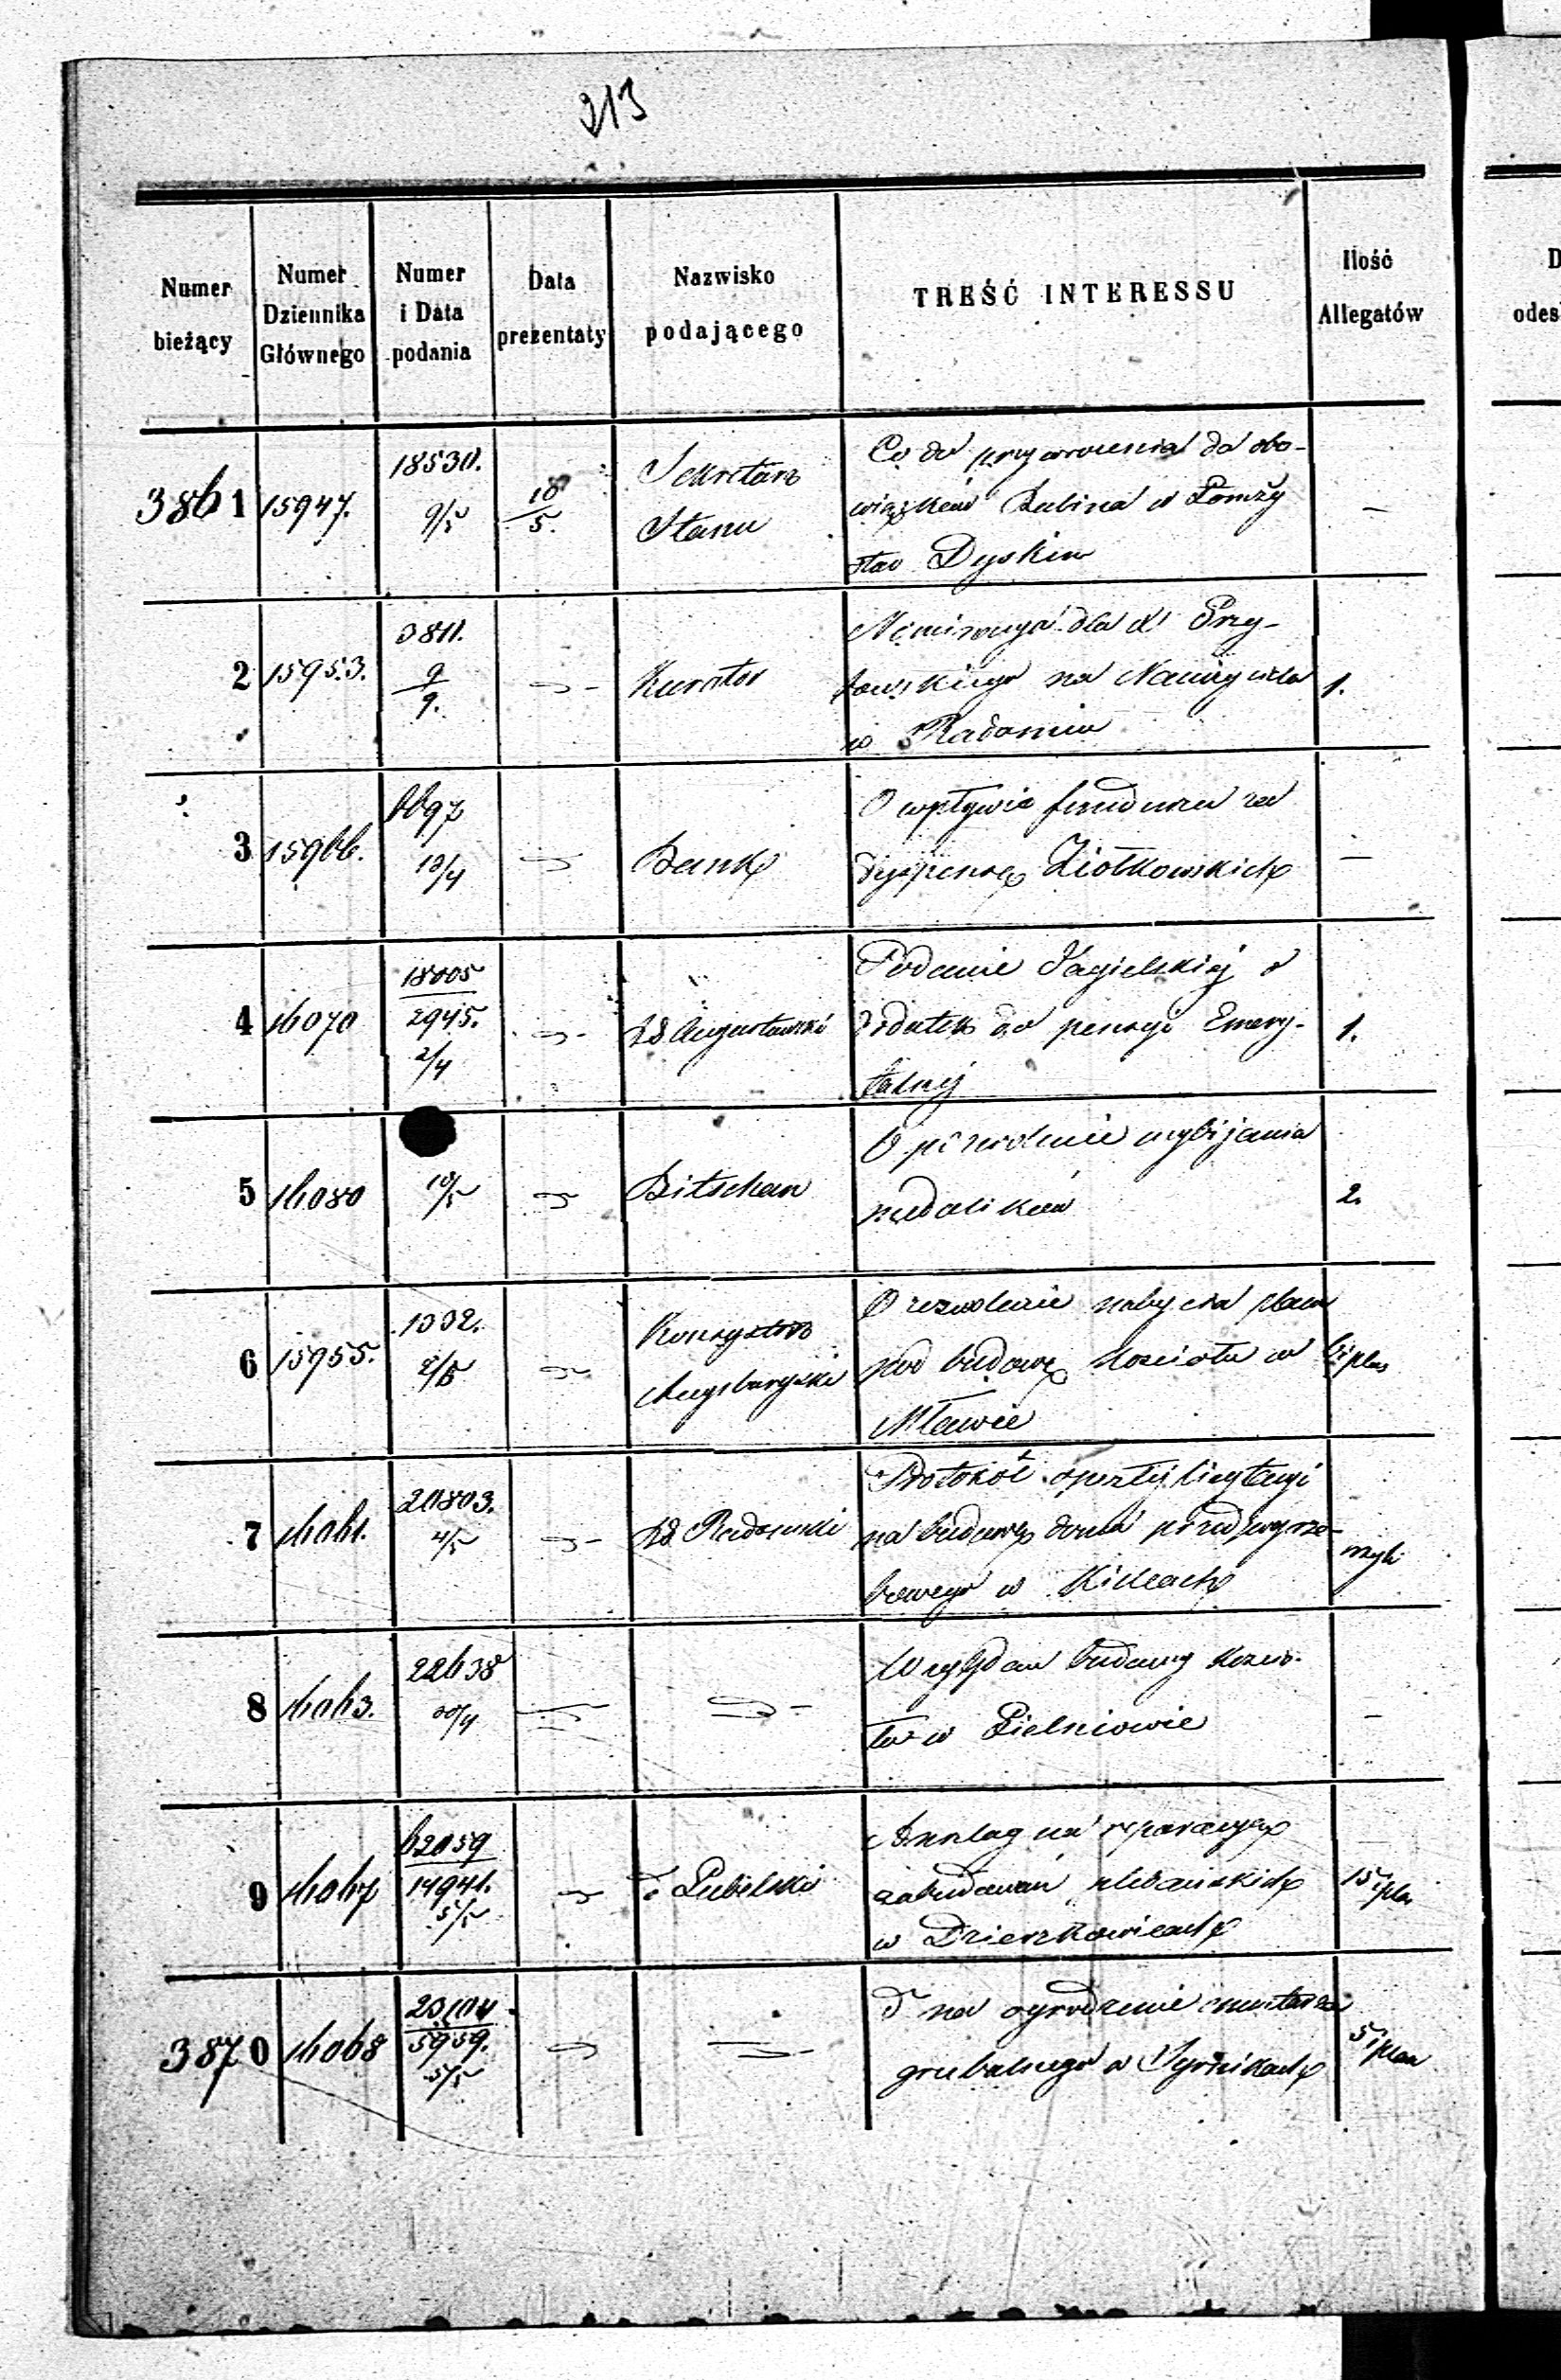 213
Numer bieżący
Numer Dziennika Głównego
Numer i Data podania
Data prezentaty
Nazwisko podającego
TREŚĆ INTERESSU
Ilość Allegatów
D
odes
3861 15947. 18530. 9/5 10/5. Sekretarz Stanu
Co do przywrócenia do obo-
wiązków Rabina w Łomży
Dyskin
—
2 15953. 3811. 9/9. Kurator
dla X. Przy-
na Nauczyciela
w Radomiu
1.
3 15966. 6697 13/4 Bank
O wpływie funduszu za
dyspensę Ziółkowskich
—
4 16070 18005 2945. 2/4 Rd Augustowski
Podanie Jagielskiej o
dodatek do pensyi Emery-
talnej
1.
5 16080 10/5 Bitschan
O pozwolenie wybijania
medalików
2.
6 15955. 1002. 2/5 Konsystorz Augsburgski
O zezwolenie nabycia placu
pod budowę kościoła w
Mławie
plan
7 16061. 20803. 4/5 Rd. Radomski
Protokół spełzłej licytacyi
na budowę domu przedpogrze-
bowego w Kielcach
8 16063. 22638 30/4
Względem budowy kościo-
ła w Bielniowie
—
9 16067 62059 14941. 5/5 Lubelski
Anszlag na reparacyę
zabudowań plebańskich
w Dzierzkowicach
15 i plan
3870 16068 23104 5959. 5/5
na ogrodzenie cmentarza
grzebalnego w Syrnikach
5 i plan